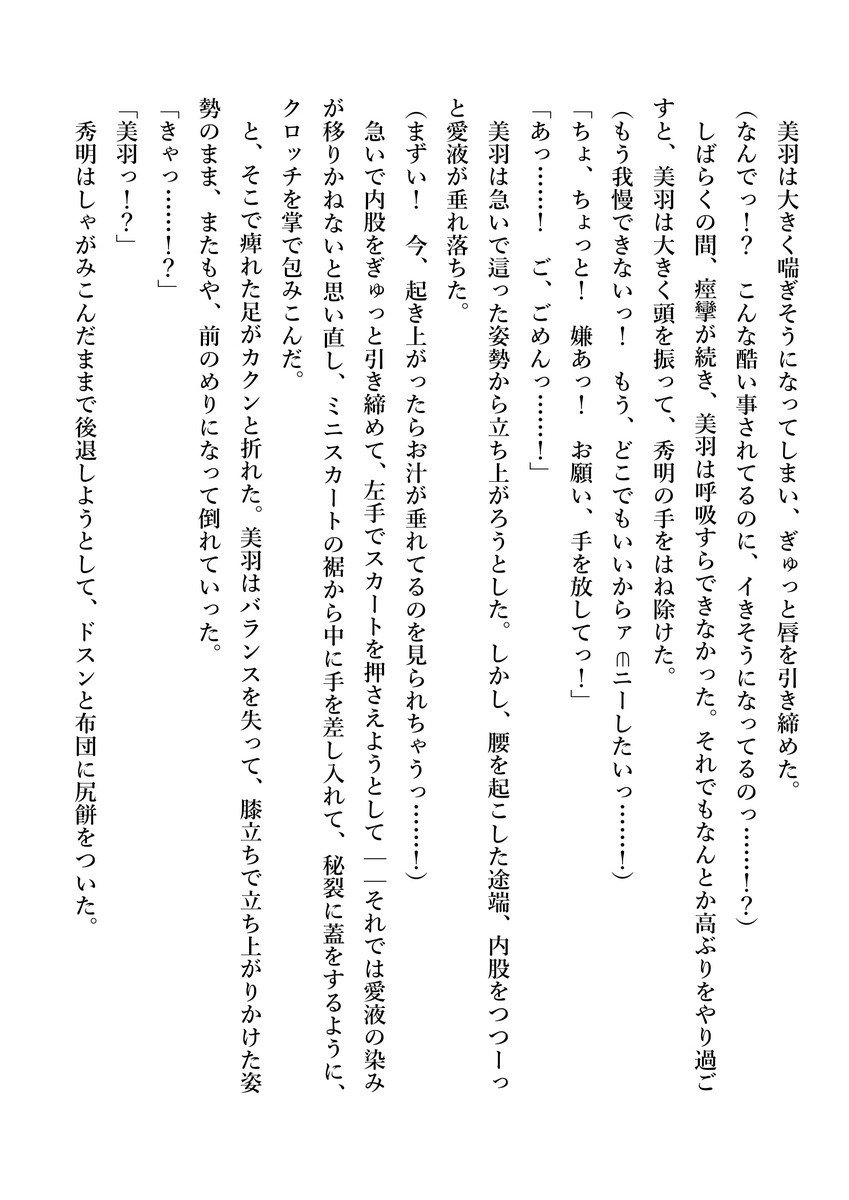 美羽は大きく喘ぎそうになってしまい、ぎゅっと唇を引き締めた。
(なんでっ!? こんな酷い事されてるのに、イきそうになってるのっ……!?)
しばらくの間、痙攣が続き、美羽は呼吸すらできなかった。それでもなんとか高ぶりをやり過ご
すと、美羽は大きく頭を振って、秀明の手をはね除けた。
(もう我慢できないっ! もう、どこでもいいからァ⋒ニーしたいっ……!)
「ちょ、ちょっと! 嫌あっ! お願い、手を放してっ!」
「あっ……! ご、ごめんっ……!」
美羽は急いで這った姿勢から立ち上がろうとした。しかし、腰を起こした途端、内股をつつーっ
と愛液が垂れ落ちた。
(まずい! 今、起き上がったらお汁が垂れてるのを見られちゃうっ……!)
急いで内股をぎゅっと引き締めて、左手でスカートを押さえようとして――それでは愛液の染み
が移りかねないと思い直し、ミニスカートの裾から中に手を差し入れて、秘裂に蓋をするように、
クロッチを掌で包みこんだ。
と、そこで痺れた足がカクンと折れた。美羽はバランスを失って、膝立ちで立ち上がりかけた姿
勢のまま、またもや、前のめりになって倒れていった。
「きゃっ……!?」
「美羽っ!?」
秀明はしゃがみこんだままで後退しようとして、ドスンと布団に尻餅をついた。